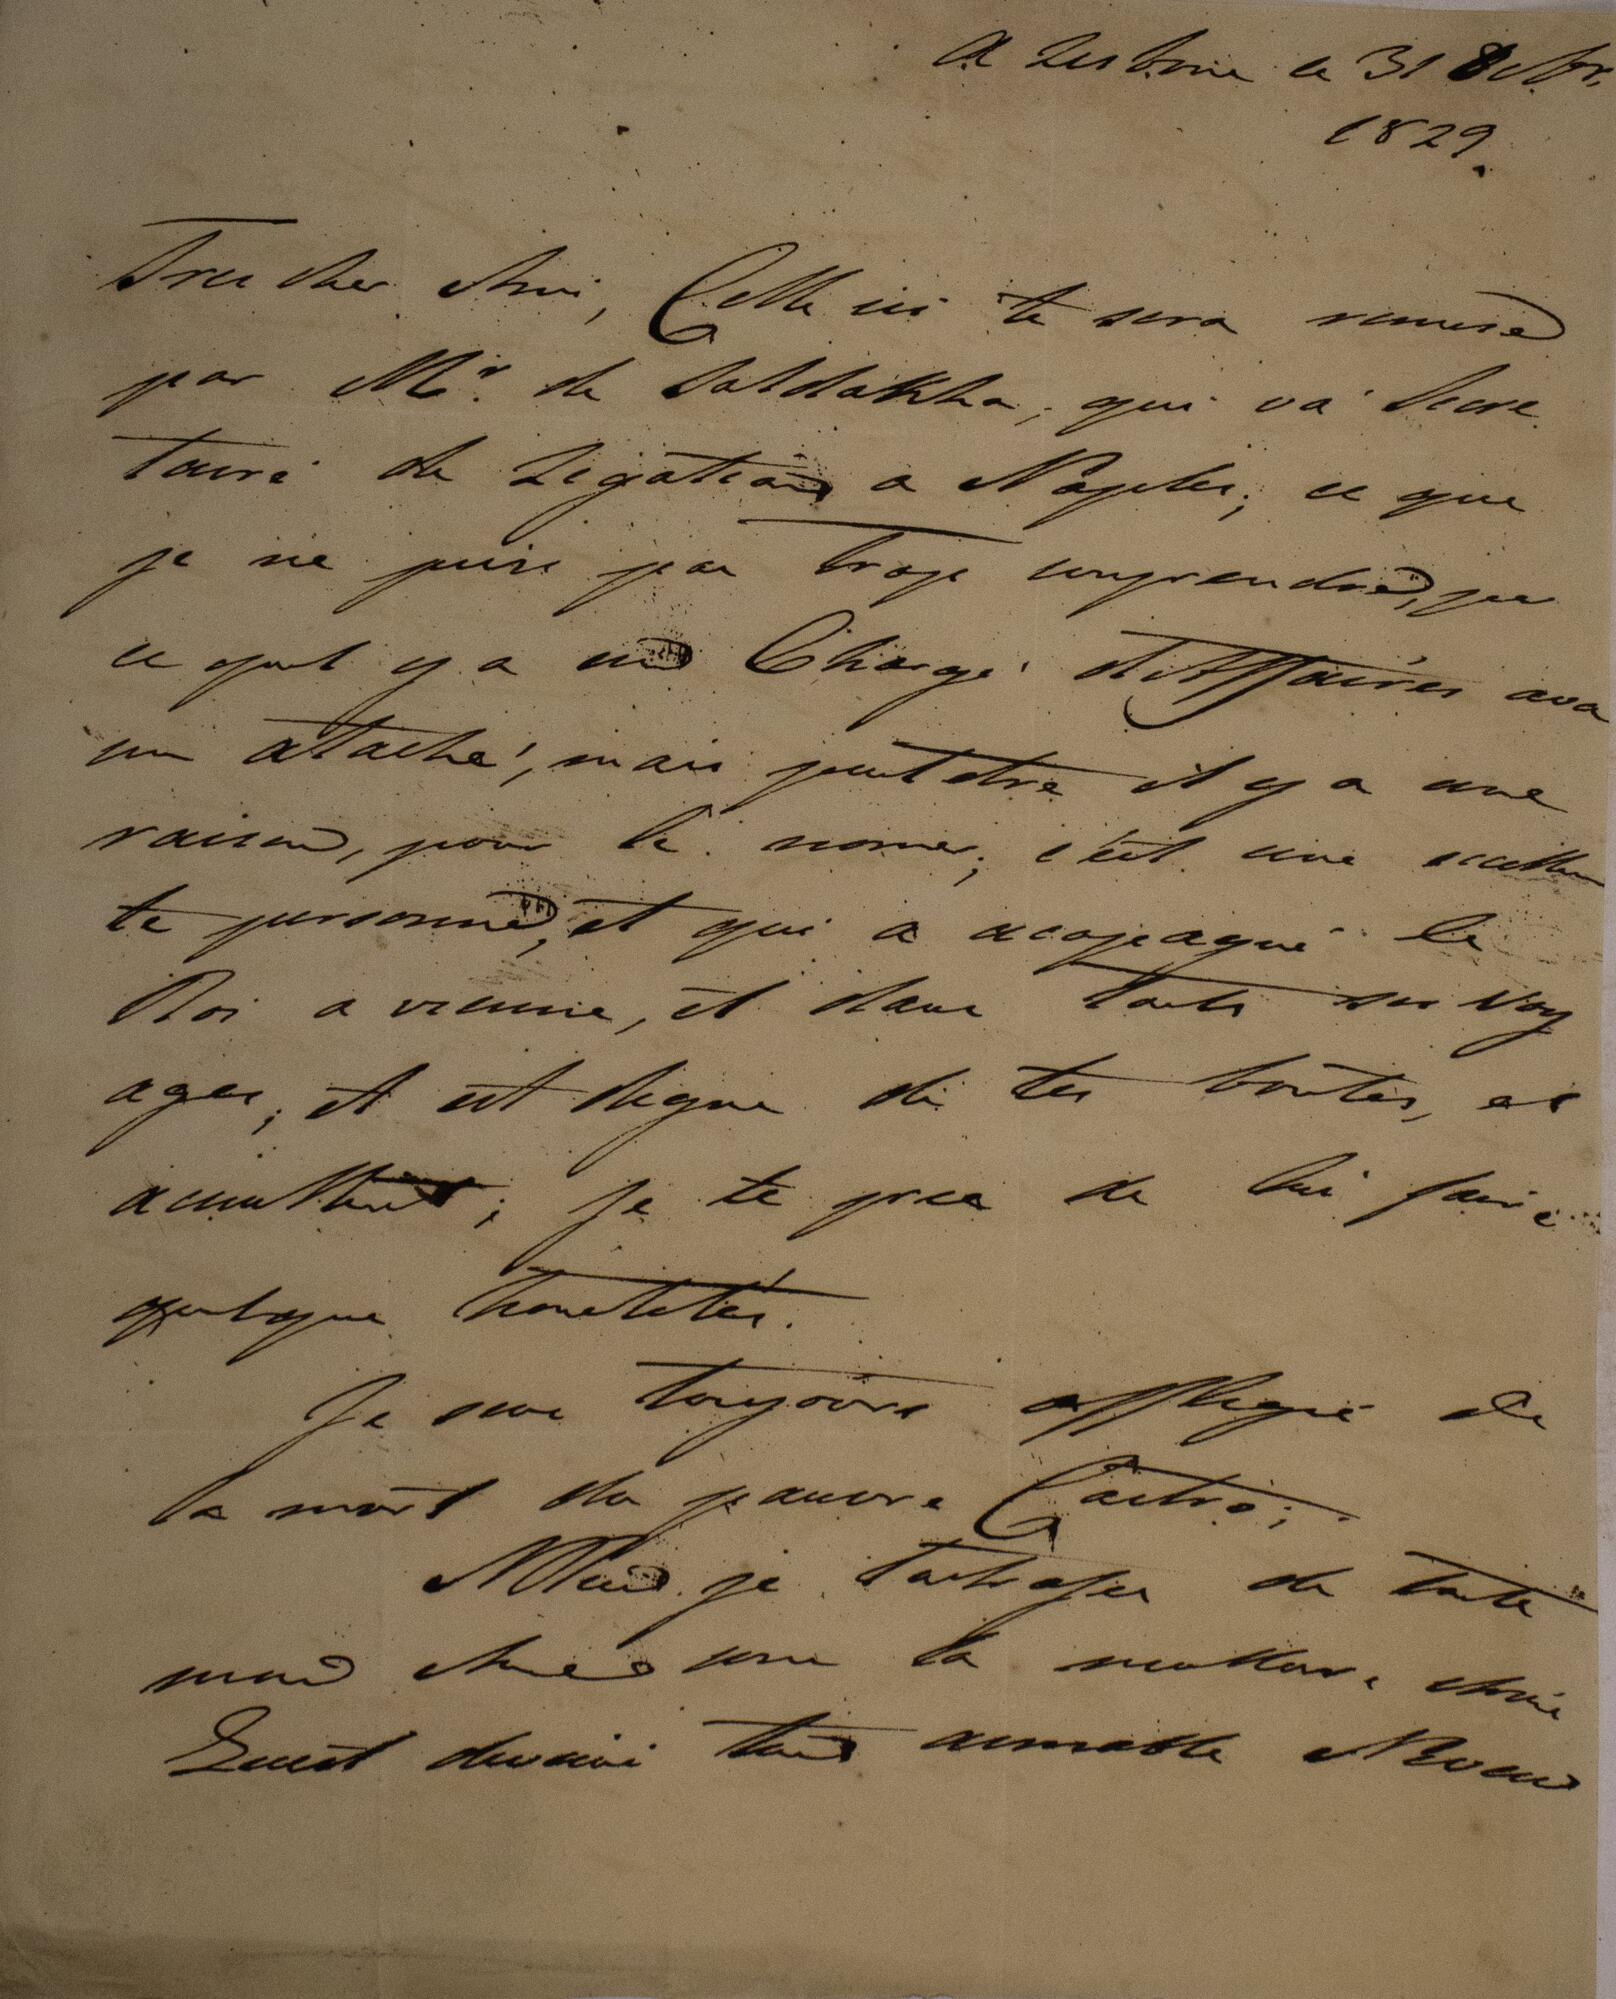 A Lisbone le 31 8bre.
1829.
Tres cher Ami, Celle ci te sera remise
par Mr. de Saldanha, qui vá Secre
taire de Legation a Naples; ce que
je ne puis pas trop comprendre, par
ce quil y a un Chargé d'Affaires avec
un attaché, mais peut etre il y a une
raison, pour le nomer; c'est une excellen
te personne, et qui a acopagné le
Roi a vienne, et dans touts ses Voy
ages, et est digne de tes bontés, et
; Je te prie de lui faire
quelque honetetés.
Je suis toujours affligé de
la mort du pauvre Castro;
Adieu je de toute
mon Ame une la meilleure
Quest devenu ton aimable